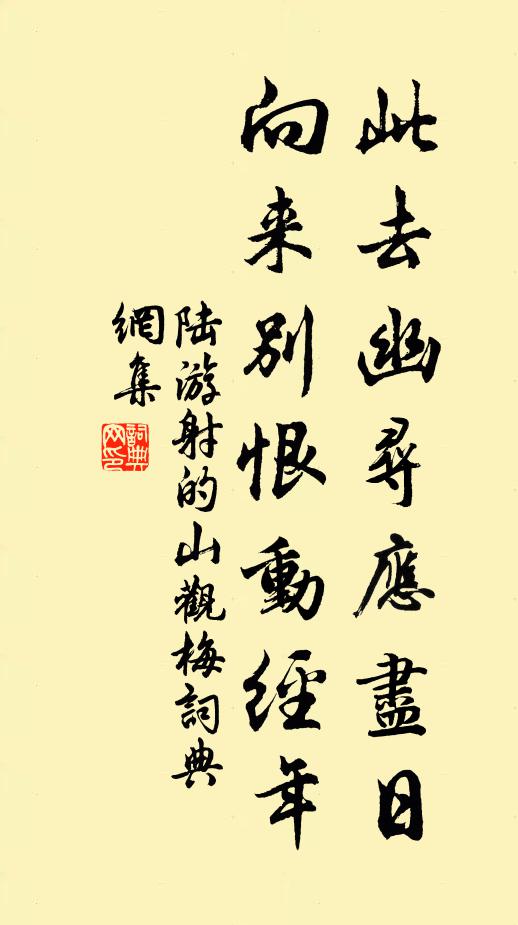 此去幽尋應盡日
向来別恨動經年
陆游射的山觀梅詞典
網集
詞典网印